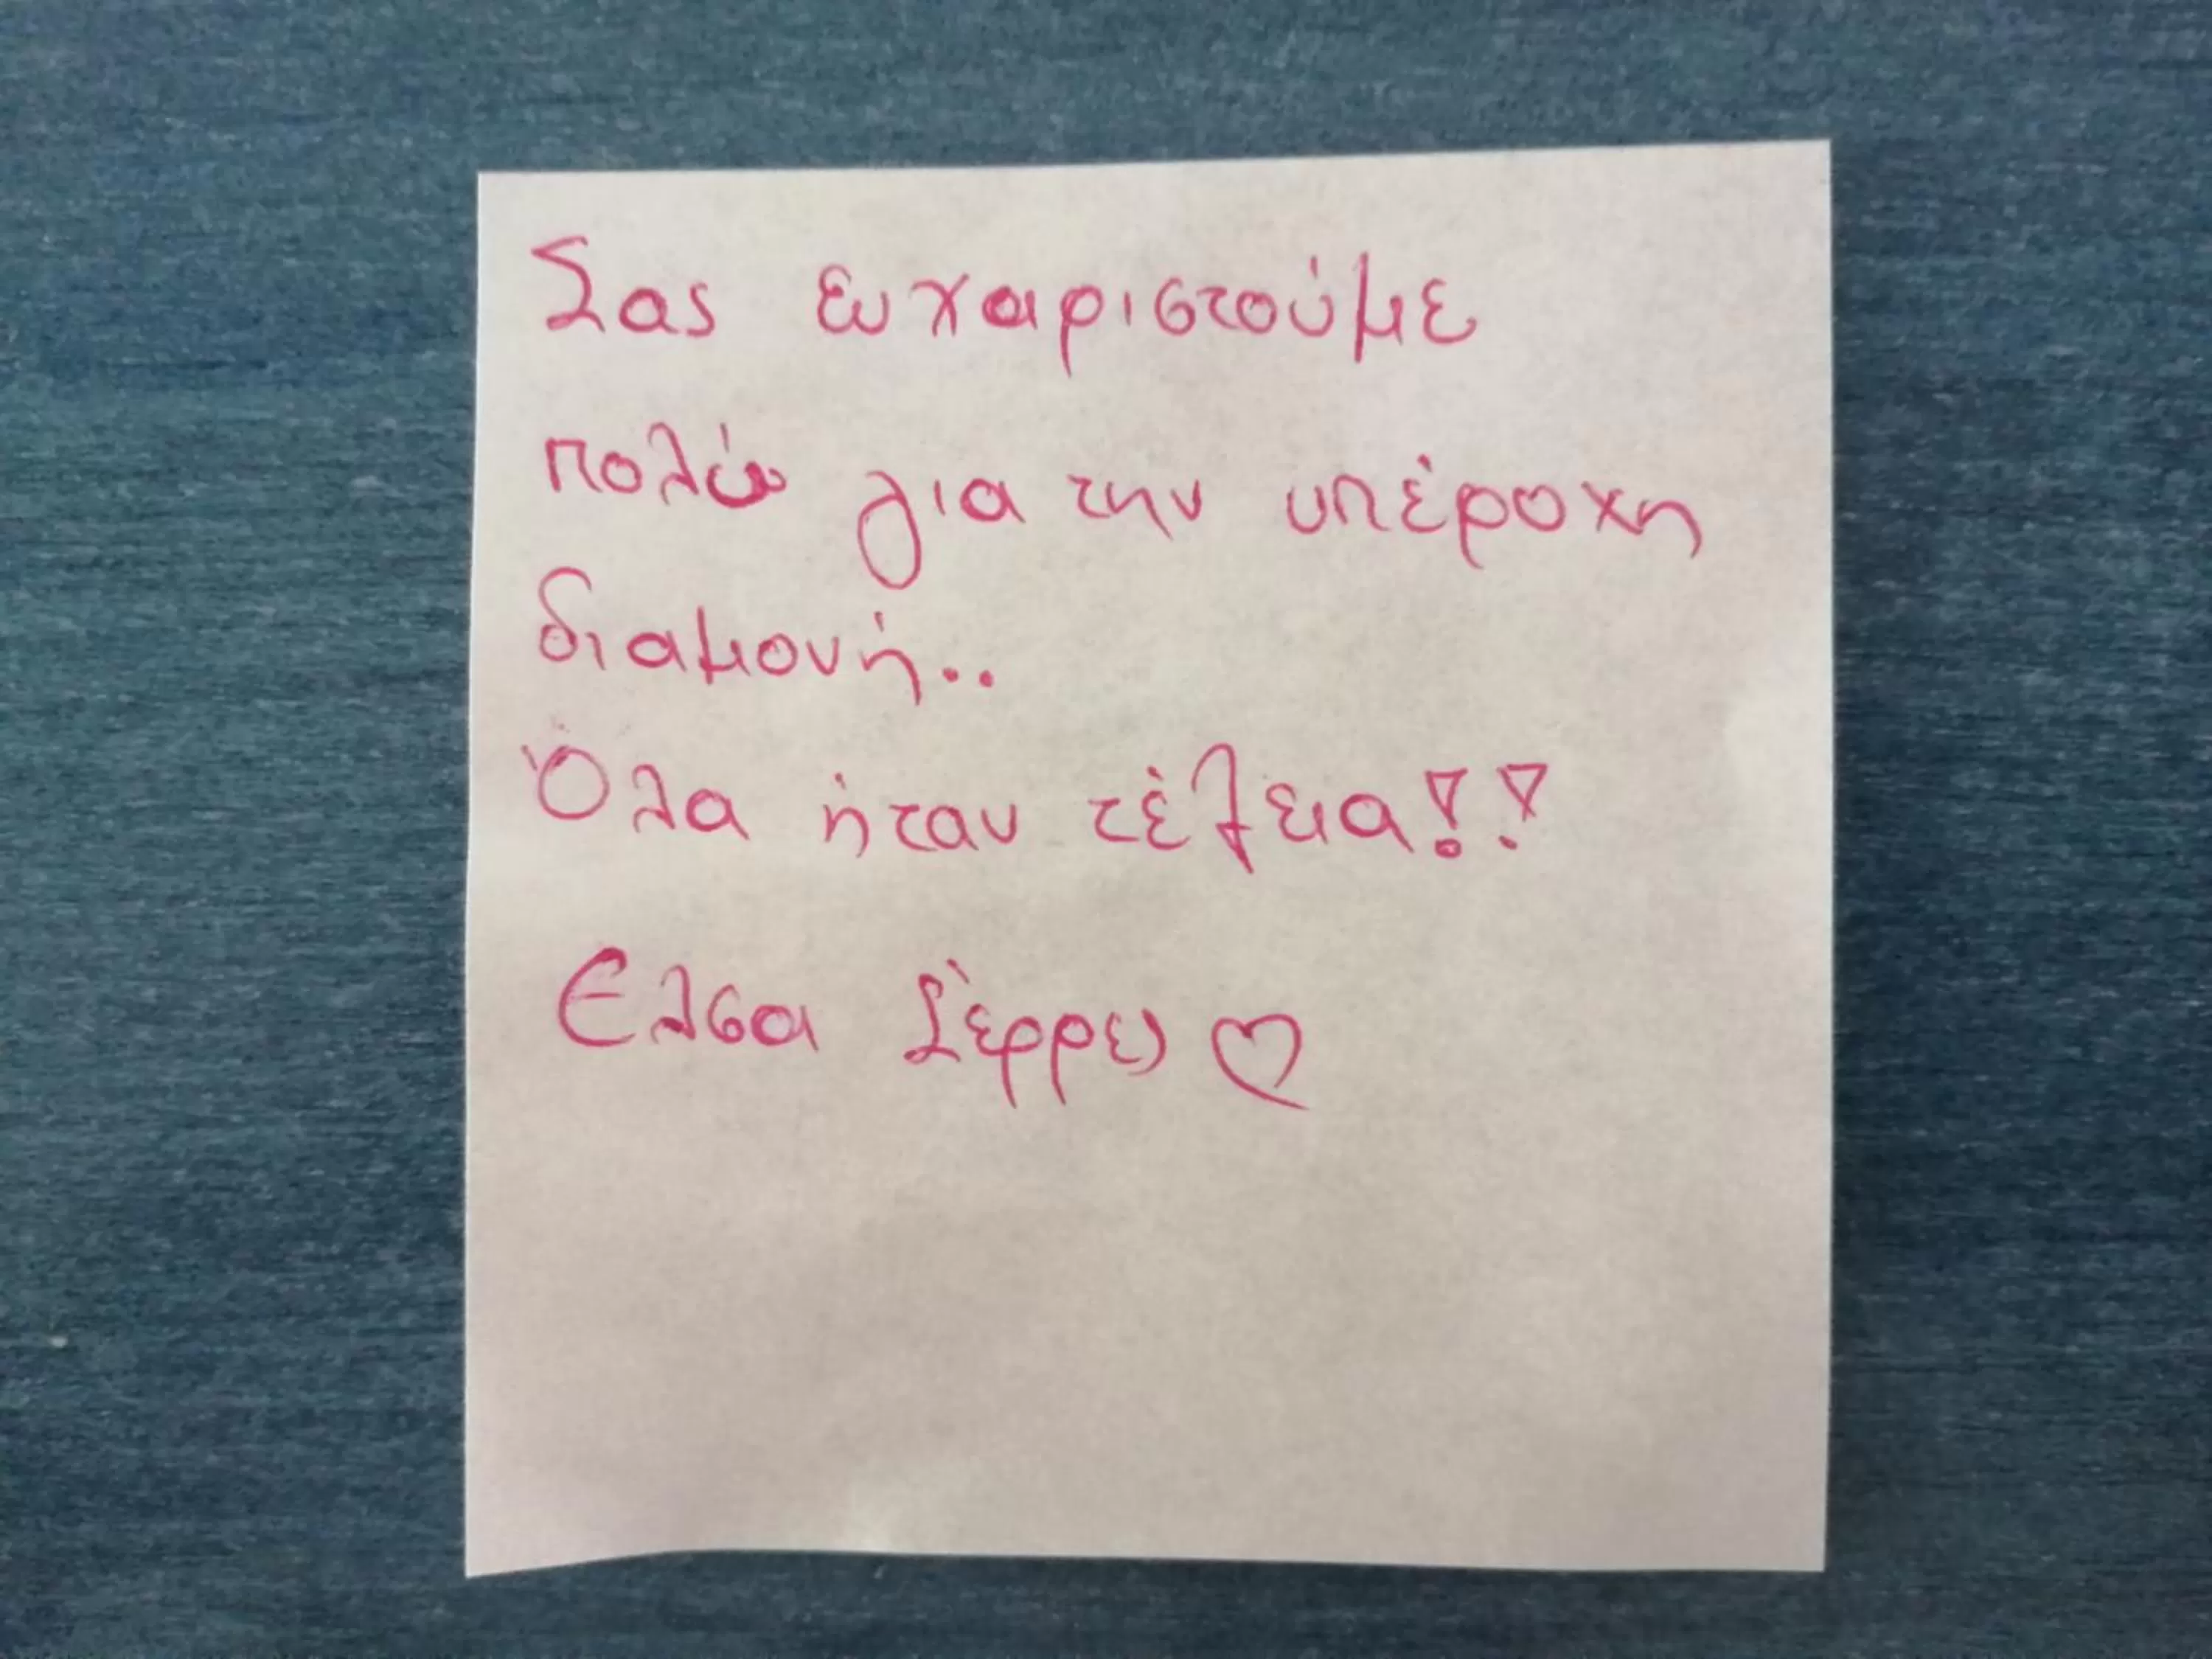 Σας ευχαριστούμε
πολύ για την υπέροχη
διαμονή..
Όλα ήταν τέλεια!!
Ελσα Σέρρες ♡